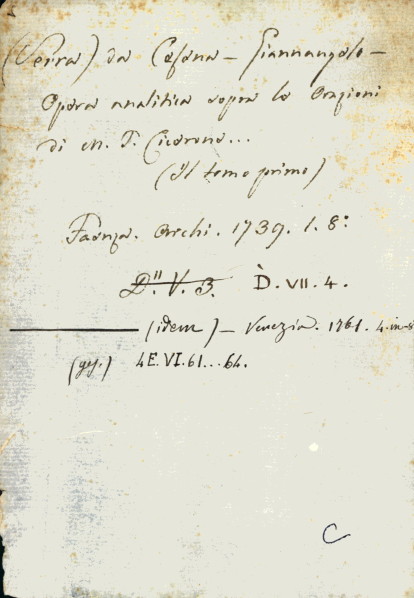 (Serra) da Cesena – Giannangelo –
Opera analitica sopra le Orazioni
di M. T. Cicerone...
(il tomo primo)
Faenza. Archi. 1739. 1. 8º.
D''. V. 3. D. VII. 4.
(idem) – Venezia. 1761. 4. in-8
4E. VI. 61... 64.
C